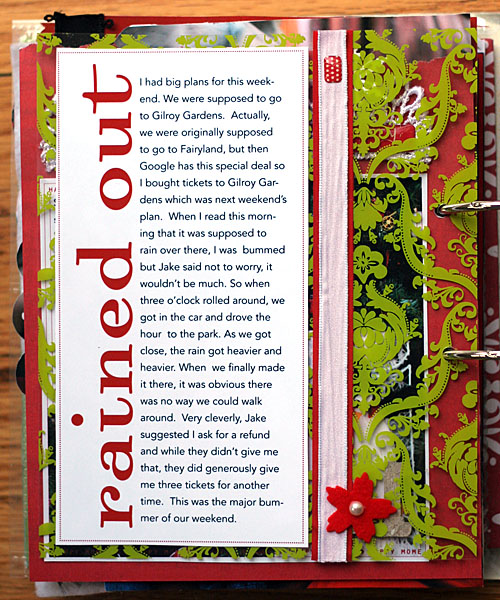 rained out
I had big plans for this week-
end. We were supposed to go
to Gilroy Gardens. Actually,
we were originally supposed
to go to Fairyland, but then
Google has this special deal so
I bought tickets to Gilroy Gar-
dens which was next weekend's
plan. When I read this morn-
ing that it was supposed to
rain over there, I was bummed
but Jake said not to worry, it
wouldn't be much. So when
three o'clock rolled around, we
got in the car and drove the
hour to the park. As we got
close, the rain got heavier and
heavier. When we finally made
it there, it was obvious there
was no way we could walk
around. Very cleverly, Jake
suggested I ask for a refund
and while they didn't give me
that, they did generously give
me three tickets for another
time. This was the major bum-
mer of our weekend.